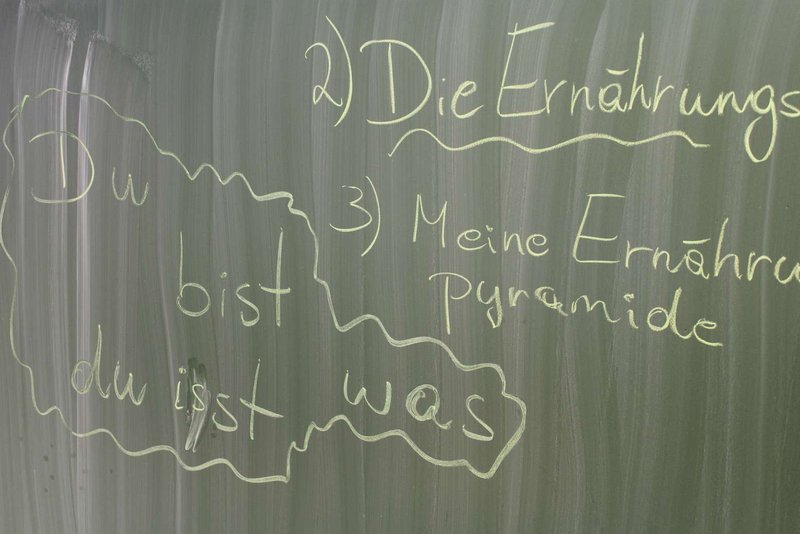 2) Die Ernährungs
3) Meine Ernähru
pyramide
Du
bist
du isst was